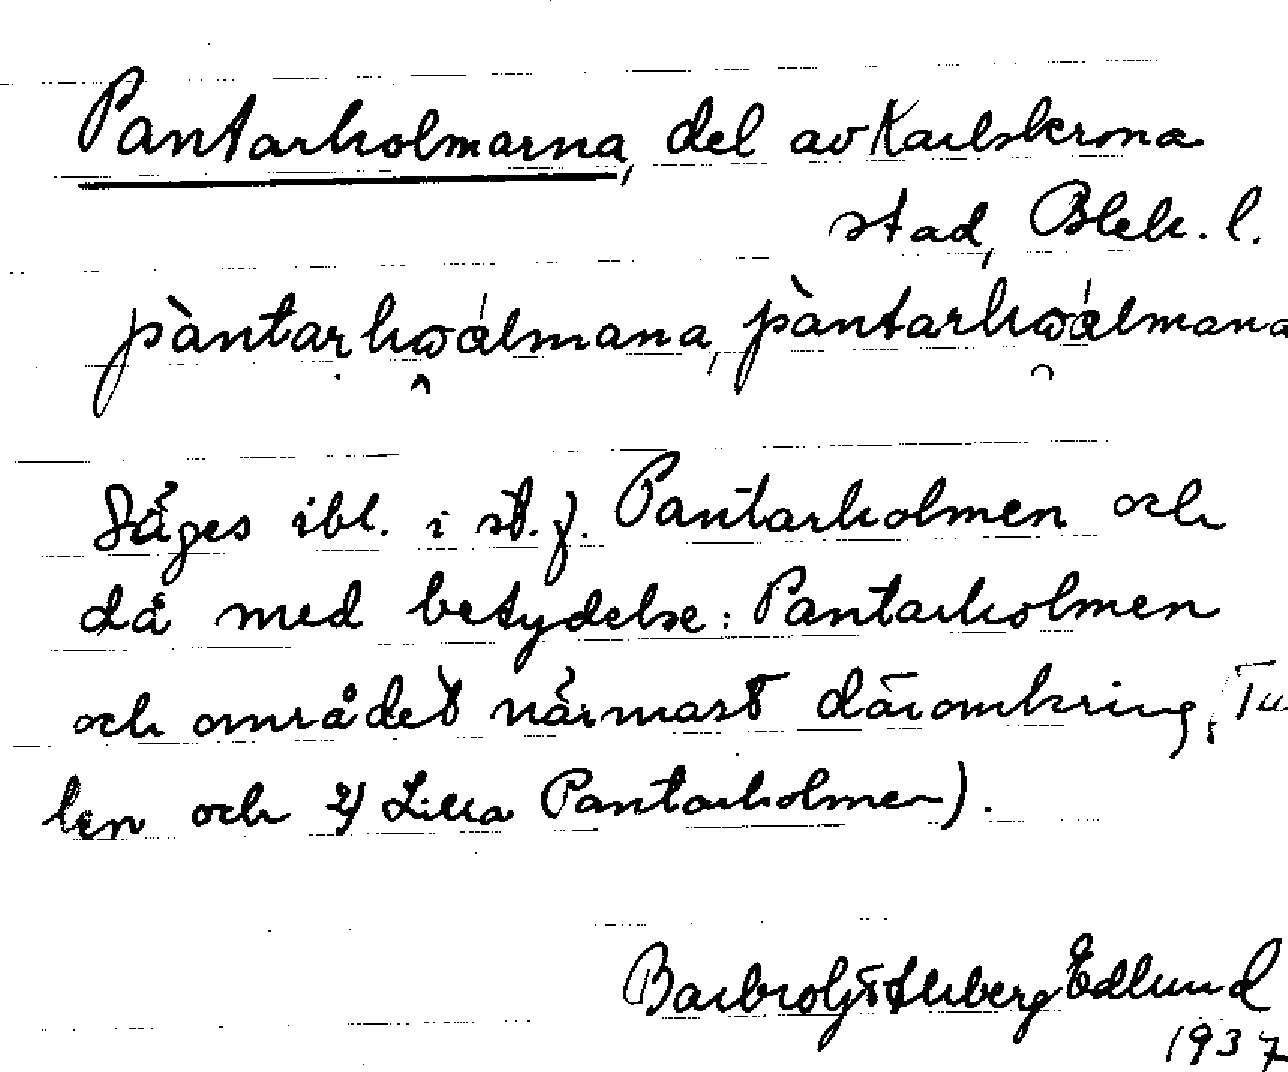 Pantarholmarna, del av Karlskrona
stad, Blek. l.
pàntarhωálmana, pàntarhωálmana
Säges ibl. i st. f. Pantarholmen och
då med betydelse: Pantarholmen
och området närmast däromkring, Tu
len och 2) Lilla Pantarholmen).
Barbro Edlund
1937